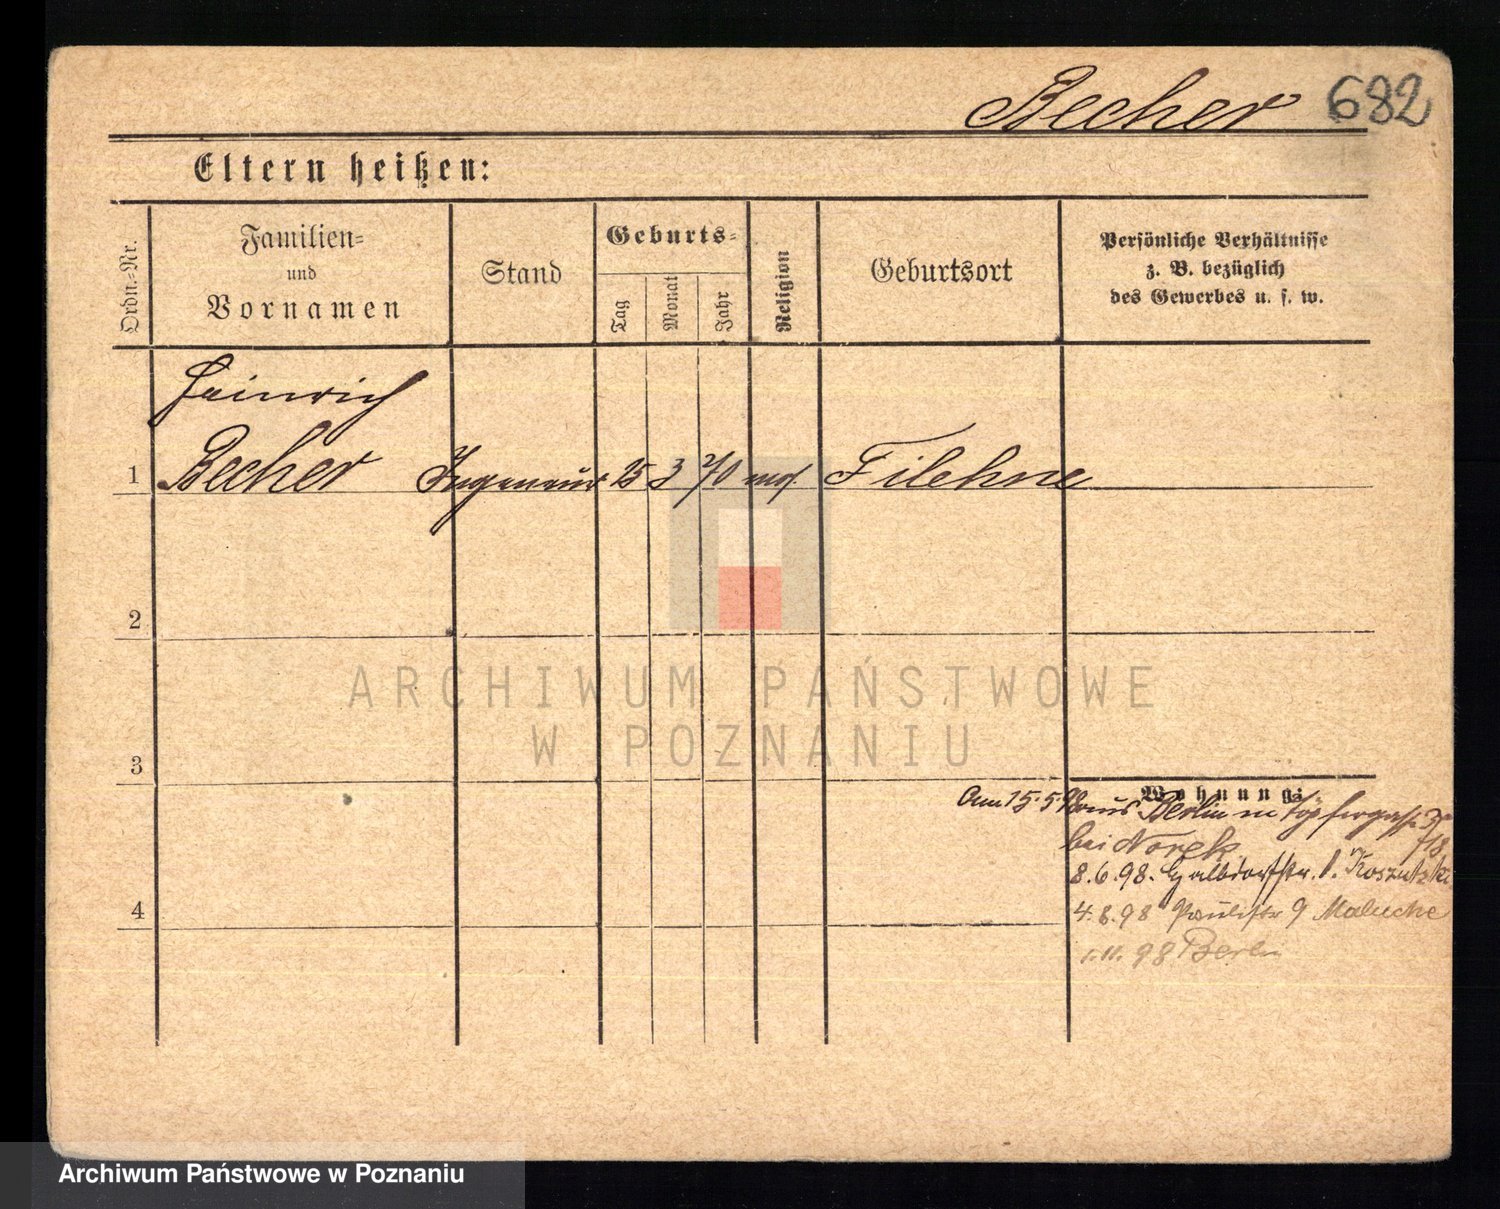 Becher 682
Eltern heißen:
Ordn.-Nr.
Familien-
und
Vornamen
Stand
Geburts-
Tag
Monat
Jahr
Religion
Geburtsort
Persönliche Verhältnisse
z. B. bezüglich
des Gewerbes u. s. w.
Heinrich
1 Becher Ingenieur 25 3 70 mos. Filehne
2
ARCHIWUM PAŃSTWOWE
W POZNANIU
3
Wohnung:
Am 15.5.98 aus Berlin n Töpfergasse 3
bei Norek
8.6.98. 1. Koszutzki
4.8.98 Paulistr 9 Maluche
4
1.11.98 Berlin
Archiwum Państwowe w Poznaniu